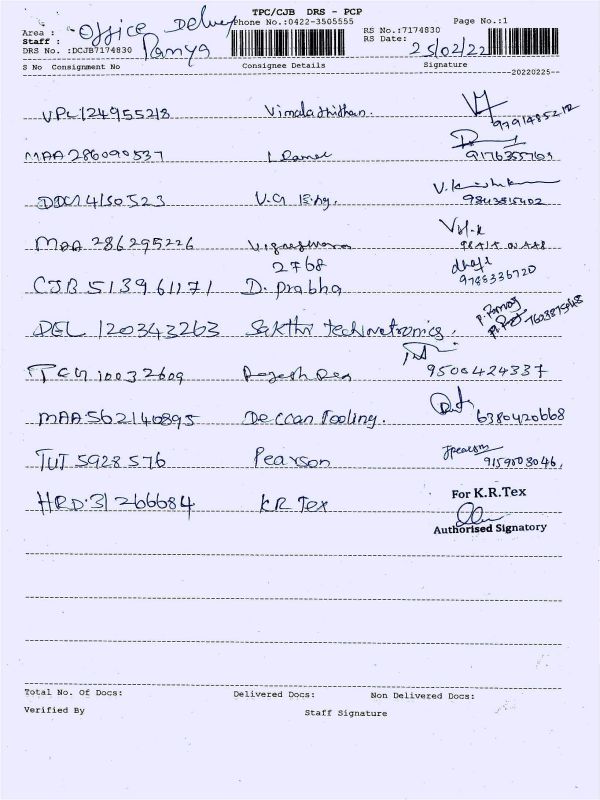 TPC/CJB DRS - PCP
Area : Office Delivery Phone No.:0422-3505555 RS No.:7174830 Page No.:1
Staff : Ramya RS Date: 25/02/22
DRS No. :DCJB7174830
S No Consignment No Consignee Details Signature
20220225
VPL 124955218 Vimaladhithan. 9791485212
MAA 286090537 9176355763
DDG 4150523 V.G Eng. V. 9843815402
MAA 286295226 Vigneshwara
2768
CJB 513961171 D. Prabha 9788336720
DEL 120343263 Sakthi technetronics. 7603875948
TCG 10032609 Rajesh 9500424337
MAA 562140895 Deccan Tooling. 6380420668
TUT 5928576 Pearson 9159003046.
HRD 31266684 KR Tex For K.R.Tex
Authorised Signatory
Total No. Of Docs: Delivered Docs: Non Delivered Docs:
Verified By Staff Signature